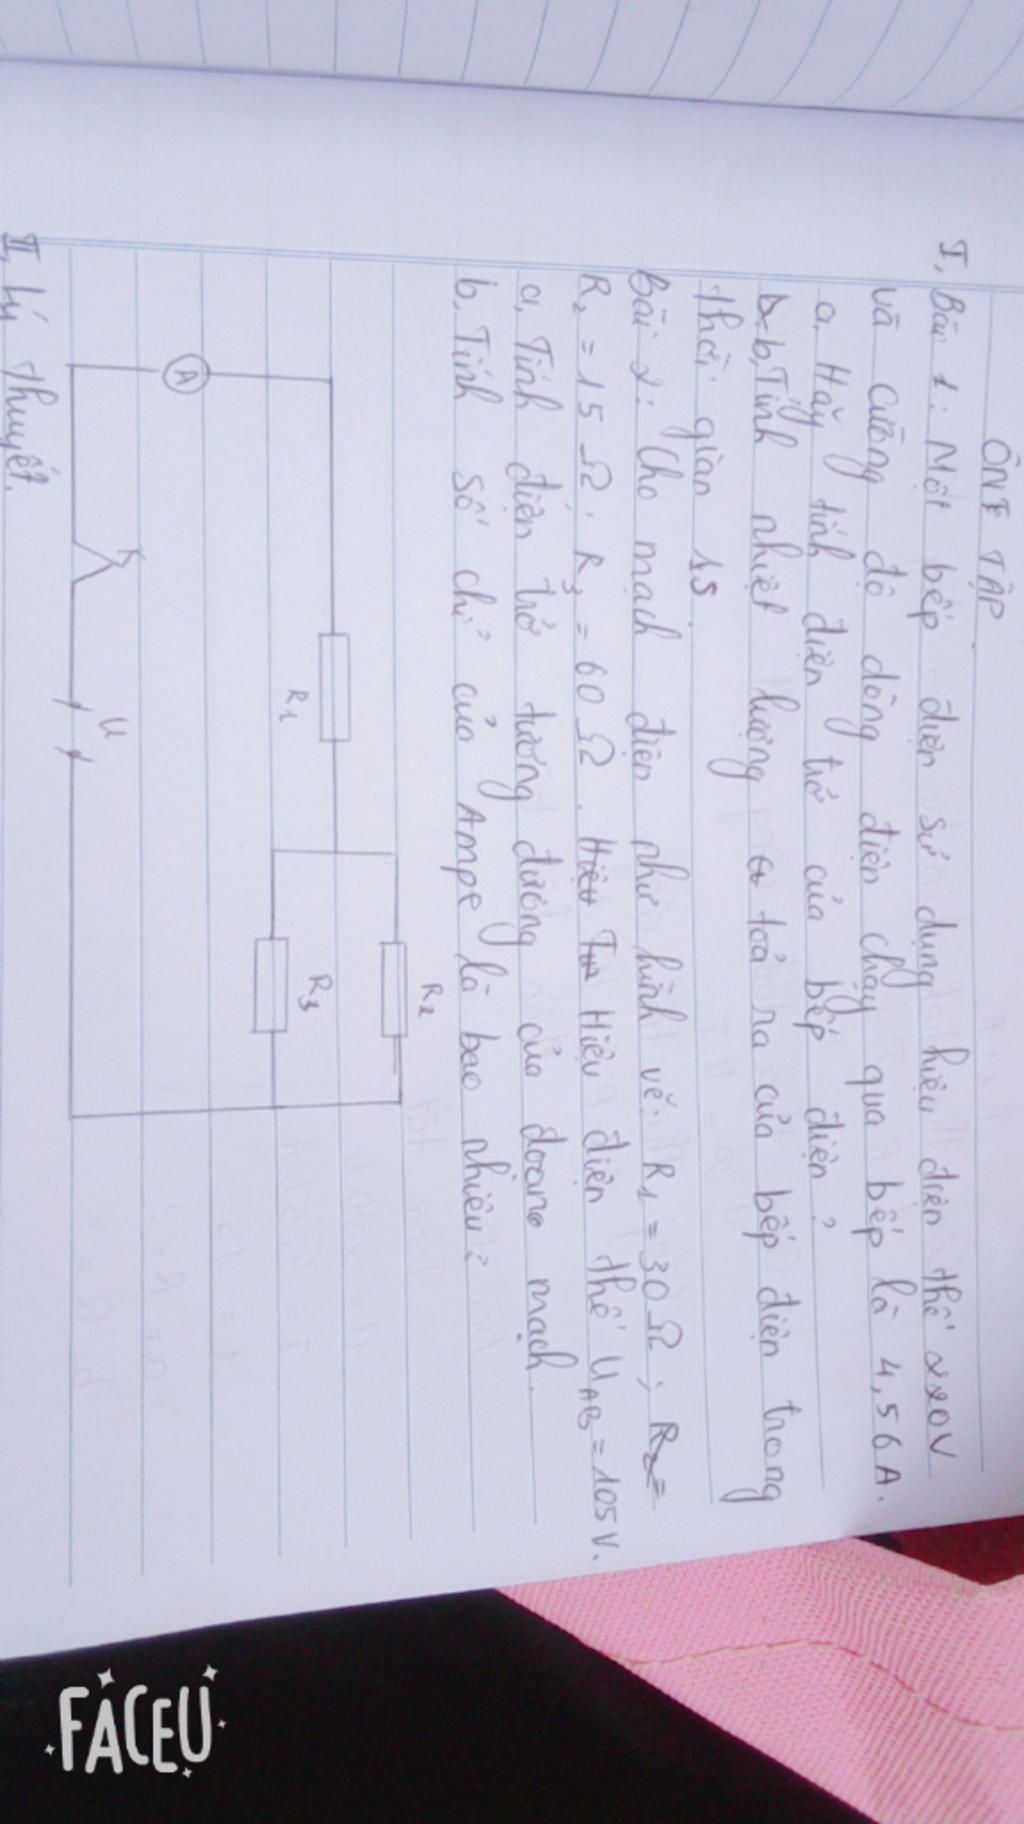 ÔN TẬP
I, Bài 1: Một bếp điện sử dụng hiệu điện thế 220V
và cường độ dòng điện chạy qua bếp là 4,56A.
a, Hãy tính điện trở của bếp điện?
b, Tính nhiệt lượng toả ra của bếp điện trong
thời gian 1s
Bài 2: Cho mạch điện như hình vẽ: R1 = 30Ω; R2=
R2 = 15Ω; R3 = 60Ω. Hiệu điện thế UAB = 105V.
a, Tính điện trở tương đương của đoạn mạch.
b, Tính số chỉ của Ampe là bao nhiêu?
R2
R1
R3
A
K
U
II, Lý thuyết.
FACEU